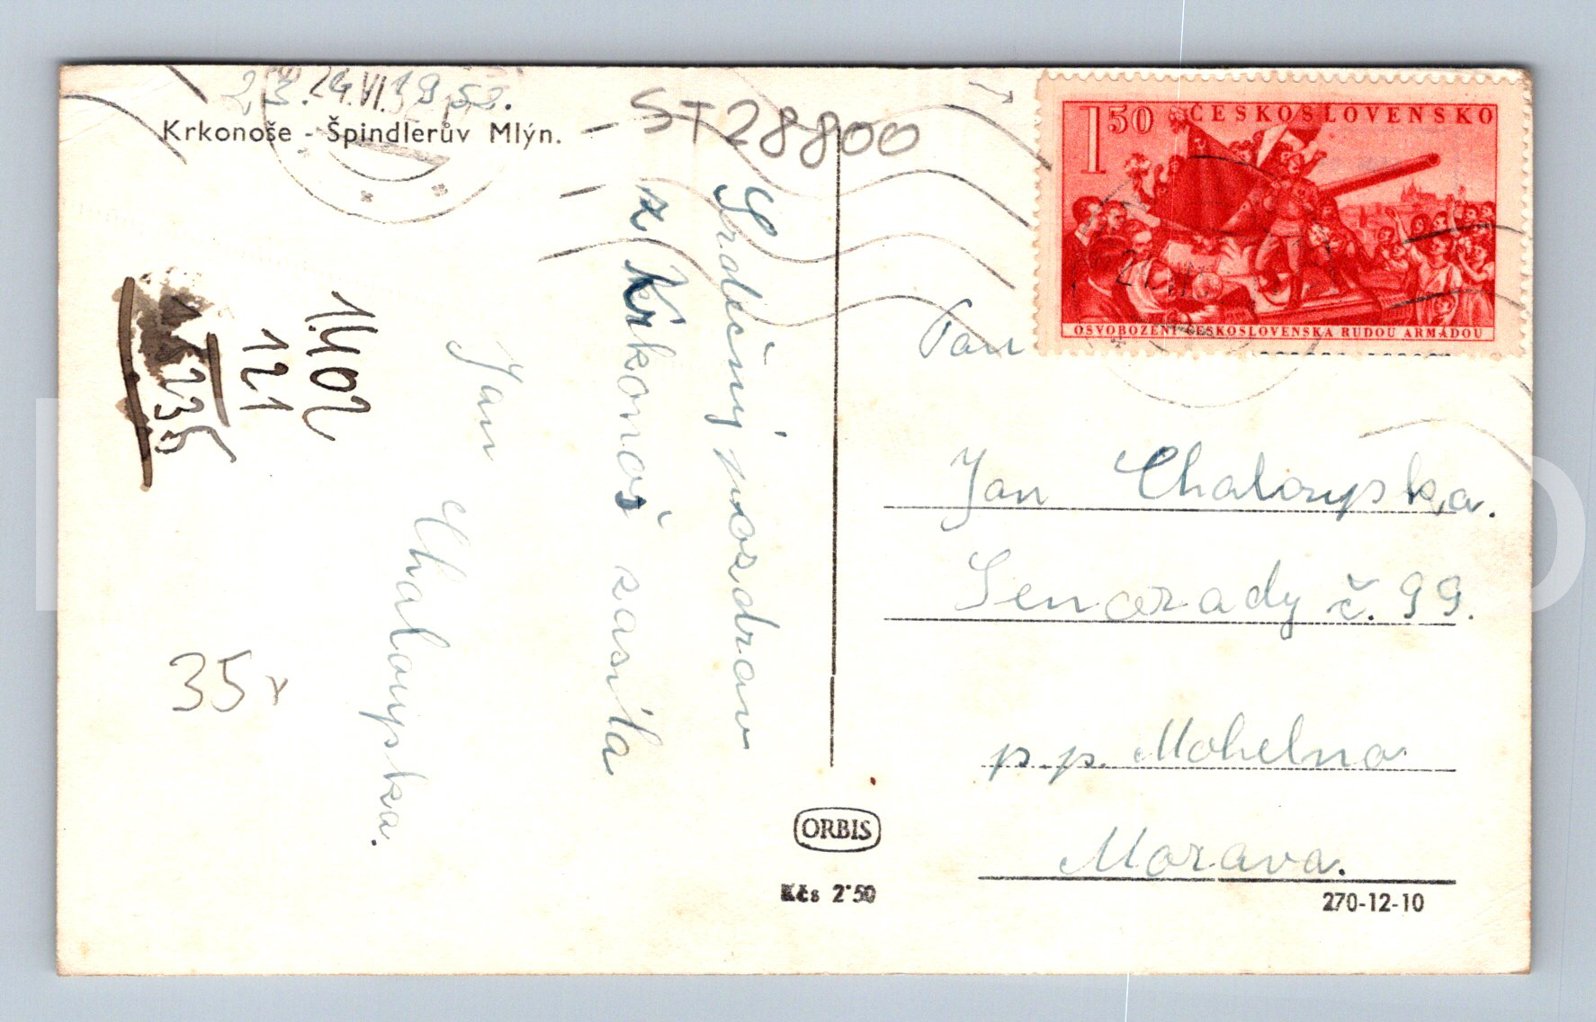 23. VI. 1953.
Krkonoše - Špindlerův Mlýn.
ST28800
Srdečný pozdrav
z Krkonoš zasílá
Jan
Chaloupska.
1402
121
1523
35
1 50 ČESKOSLOVENSKO
OSVOBOZENÍ ČESKOSLOVENSKA RUDOU ARMÁDOU
Pan
Jan Chaloupska.
Senorady č. 99.
p.p. Mohelno
Morava.
ORBIS
Kčs 2·50
270-12-10